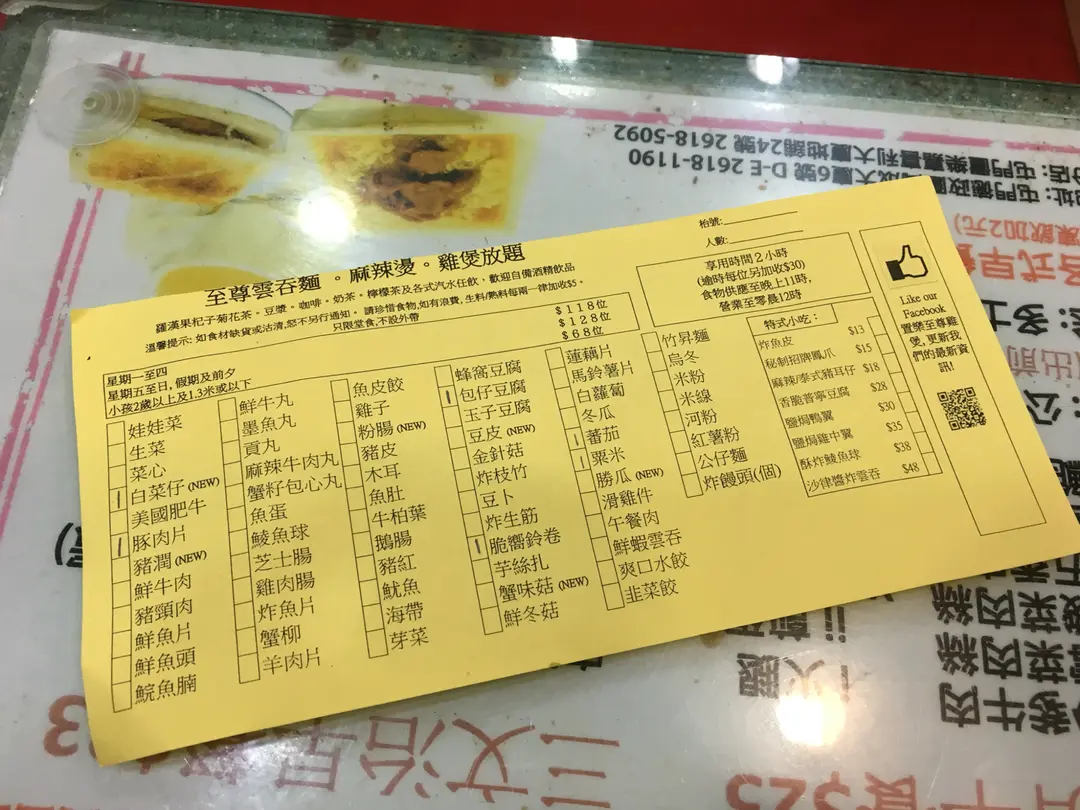 至尊雲吞麵。麻辣燙。雞煲放題
羅漢果杞子菊花茶。豆漿。咖啡。奶茶。檸檬茶及各式汽水任飲，歡迎自備酒精飲品
溫馨提示: 如食材缺貨或沽清,恕不另行通知。 請珍惜食物,如有浪費, 生料/熟料每兩一律加收$5。
只限堂食,不設外帶
星期一至四 $118位
星期五至日, 假期及前夕 $128位
小孩2歲以上及1.3米或以下 $68位
枱號:
人數:
享用時間2小時
(逾時每位另加收$30)
食物供應至晚上11時,
營業至零晨12時
娃娃菜
生菜
菜心
白菜仔 (NEW)
美國肥牛
豚肉片
豬潤 (NEW)
鮮牛肉
豬頸肉
鮮魚片
鮮魚頭
鯇魚腩
鮮牛丸
墨魚丸
貢丸
麻辣牛肉丸
蟹籽包心丸
魚蛋
鯪魚球
芝士腸
雞肉腸
炸魚片
蟹柳
羊肉片
魚皮餃
雞子
粉腸 (NEW)
豬皮
木耳
魚肚
牛柏葉
鵝腸
豬紅
魷魚
海帶
芽菜
蜂窩豆腐
包仔豆腐
玉子豆腐
豆皮 (NEW)
金針菇
炸枝竹
豆卜
炸生筋
脆嚮鈴卷
芋絲扎
蟹味菇 (NEW)
鮮冬菇
蓮藕片
馬鈴薯片
白蘿蔔
冬瓜
蕃茄
粟米
勝瓜 (NEW)
滑雞件
午餐肉
鮮蝦雲吞
爽口水餃
韮菜餃
竹昇麵
烏冬
米粉
米線
河粉
紅薯粉
公仔麵
炸饅頭(個)
特式小吃:
炸魚皮 $13
秘制招牌鳳爪 $15
麻辣/泰式豬耳仔 $18
香脆普寧豆腐 $28
鹽焗鴨翼 $30
鹽焗雞中翼 $35
酥炸鯪魚球 $38
沙律醬炸雲吞 $48
Like our
Facebook
置樂至尊雞
煲, 更新我
們的最新資
訊!
地鋪24號 2618-5092
6號 D-E 2618-1190
凍飲加2元)
各式早
三文治早